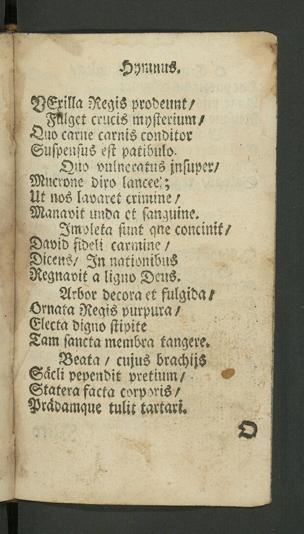 Hymnus.
VExilla Regis prodeunt/
Fulget crucis mysterium/
Quo carne carnis conditor
Suspensus est patibulo.
Quo vulneratus jnsuper/
Mucrone diro lanceę;
Ut nos lavaret crimine/
Manavit unda et sanguine.
Impleta sunt que concinit/
David fideli carmine/
Dicens/ In nationibus
Regnavit a ligno Deus.
Arbor decora et fulgida/
Ornata Regis purpura/
Electa digno stipite
Tam sancta membra tangere.
Beata/ cujus brachijs
Säcli pependit pretium/
Statera facta corporis/
Prädamque tulit tartari.
O